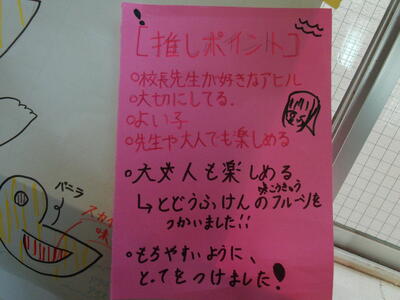 [推しポイント]
○校長先生が好きなアヒル
○大切にしてる.
○よい子
○先生や大人でも楽しめる
○大丈人も楽しめる
↳とどうふけんの味こうきゅうのフルーツを
つかいました!!
○もちやすいように、
とってをつけました!
バニラ
味